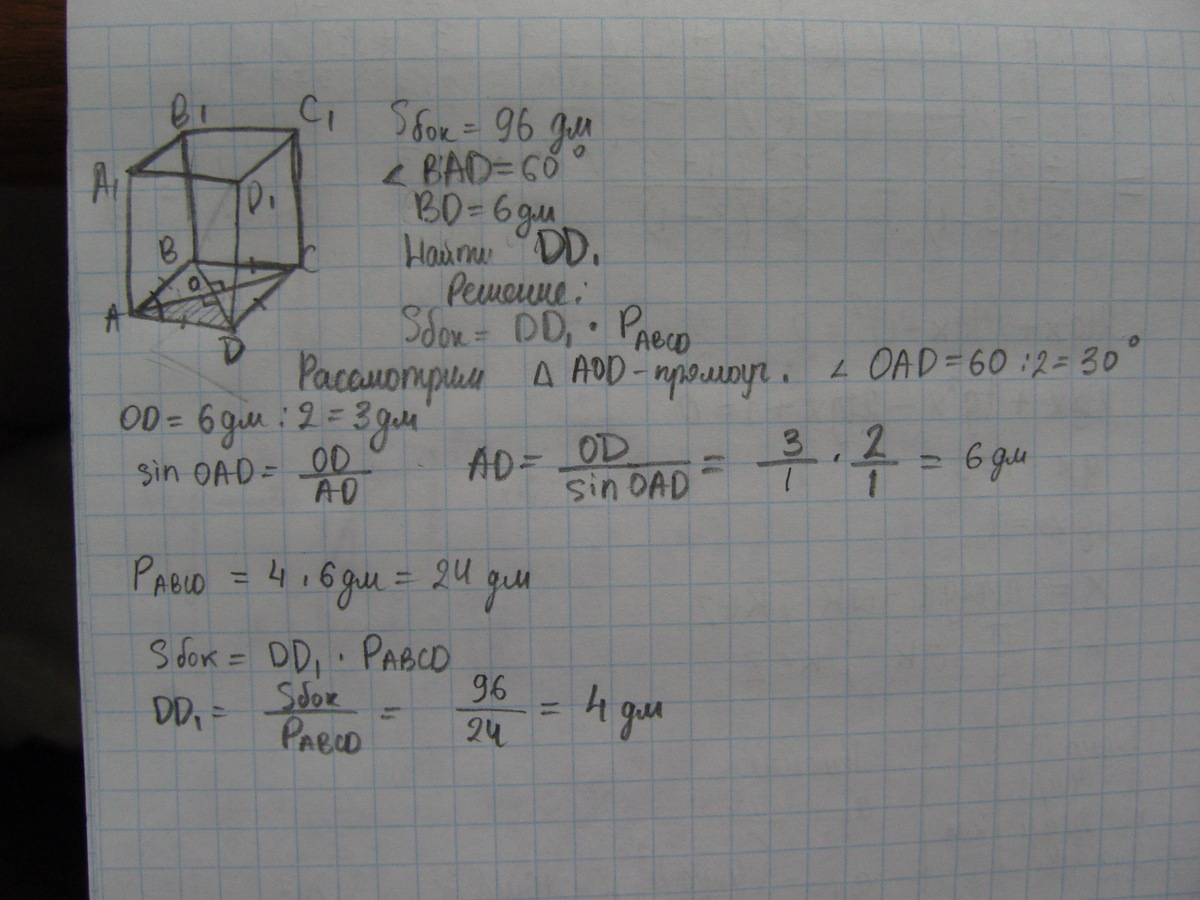 B1 C1
A1 D1
B C
O
A D
Sбок = 96 дм
∠ BAD = 60°
BD = 6 дм
Найти DD₁
Решение:
Sбок = DD₁ · P_ABCD
Рассмотрим Δ AOD - прямоуг. ∠ OAD = 60 : 2 = 30°
OD = 6 дм : 2 = 3 дм
sin OAD = OD/AD AD = OD/sin OAD = 3/1 · 2/1 = 6 дм
P_ABCD = 4 · 6 дм = 24 дм
Sбок = DD₁ · P_ABCD
DD₁ = Sбок/P_ABCD = 96/24 = 4 дм